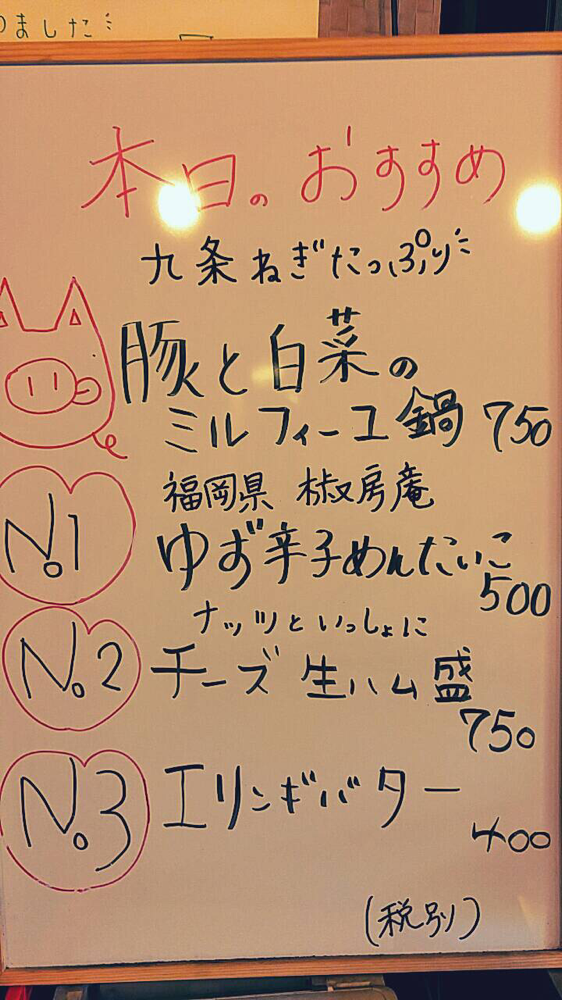 ました
本日のおすすめ
九条ねぎたっぷり
豚と白菜の
ミルフィーユ鍋 750
福岡県 椒房庵
No.1 ゆず辛子めんたいこ
500
ナッツといっしょに
No.2 チーズ 生ハム 盛
750
No.3 エリンギバター
400
(税別)